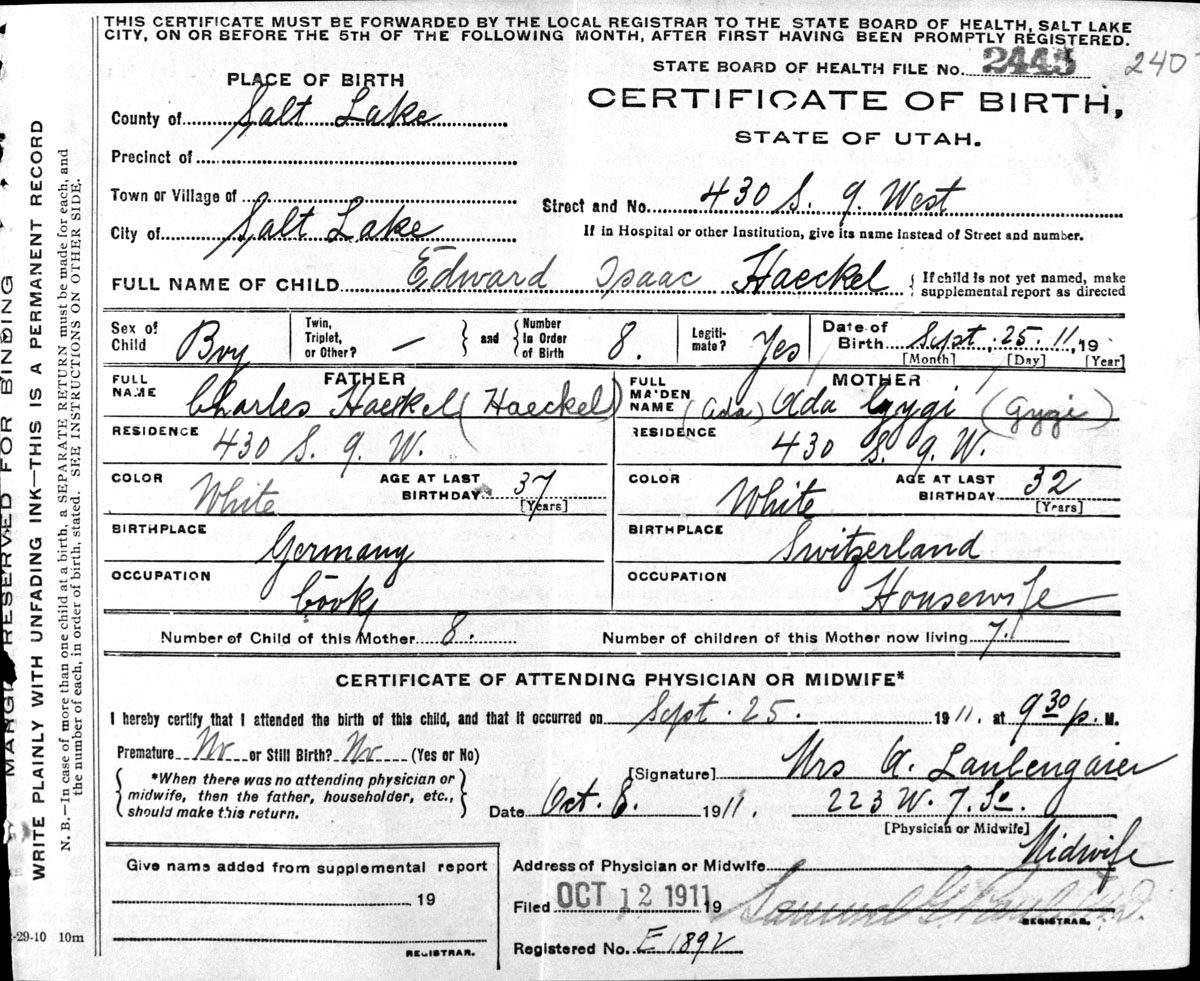 THIS CERTIFICATE MUST BE FORWARDED BY THE LOCAL REGISTRAR TO THE STATE BOARD OF HEALTH, SALT LAKE
CITY, ON OR BEFORE THE 5TH OF THE FOLLOWING MONTH, AFTER FIRST HAVING BEEN PROMPTLY REGISTERED.
STATE BOARD OF HEALTH FILE No. 2443 240
PLACE OF BIRTH
CERTIFICATE OF BIRTH,
STATE OF UTAH.
County of Salt Lake
Precinct of
Town or Village of
Street and No. 430 S. 9. West
City of Salt Lake
If in Hospital or other Institution, give its name instead of Street and number.
FULL NAME OF CHILD Edward Isaac Haeckel { If child is not yet named, make
supplemental report as directed
Sex of Child Boy
Twin, Triplet, or Other? — } and { Number In Order of Birth 8.
Legiti-mate? Yes
Date of Birth Sept. 25. 11, 19
[Month] [Day] [Year]
FATHER
FULL NAME Charles Haeckel (Haeckel)
MOTHER
FULL MAIDEN NAME (Ada) Ada Gygi (Gygi)
RESIDENCE 430 S. 9. W.
RESIDENCE 430 S. 9. W.
COLOR White AGE AT LAST BIRTHDAY 37 [Years]
COLOR White AGE AT LAST BIRTHDAY 32 [Years]
BIRTHPLACE Germany
BIRTHPLACE Switzerland
OCCUPATION Cook
OCCUPATION Housewife
Number of Child of this Mother 8. Number of children of this Mother now living 7.
CERTIFICATE OF ATTENDING PHYSICIAN OR MIDWIFE*
I hereby certify that I attended the birth of this child, and that it occurred on Sept. 25. 1911, at 9 30 p. M.
Premature No or Still Birth? No (Yes or No)
*When there was no attending physician or
midwife, then the father, householder, etc.,
should make this return.
[Signature] Mrs A. Laubengaier
Date Oct. 8. 1911. 223 W. 7. So.
[Physician or Midwife]
Midwife
Give name added from supplemental report
19
REGISTRAR.
Address of Physician or Midwife
Filed OCT 12 1911 19 Samuel G. Paul
REGISTRAR.
Registered No. E 1892
-29-10 10m
MARGIN RESERVED FOR BINDING
WRITE PLAINLY WITH UNFADING INK—THIS IS A PERMANENT RECORD
N. B.—In case of more than one child at a birth, a SEPARATE RETURN must be made for each, and
the number of each, in order of birth, stated. SEE INSTRUCTIONS ON OTHER SIDE.